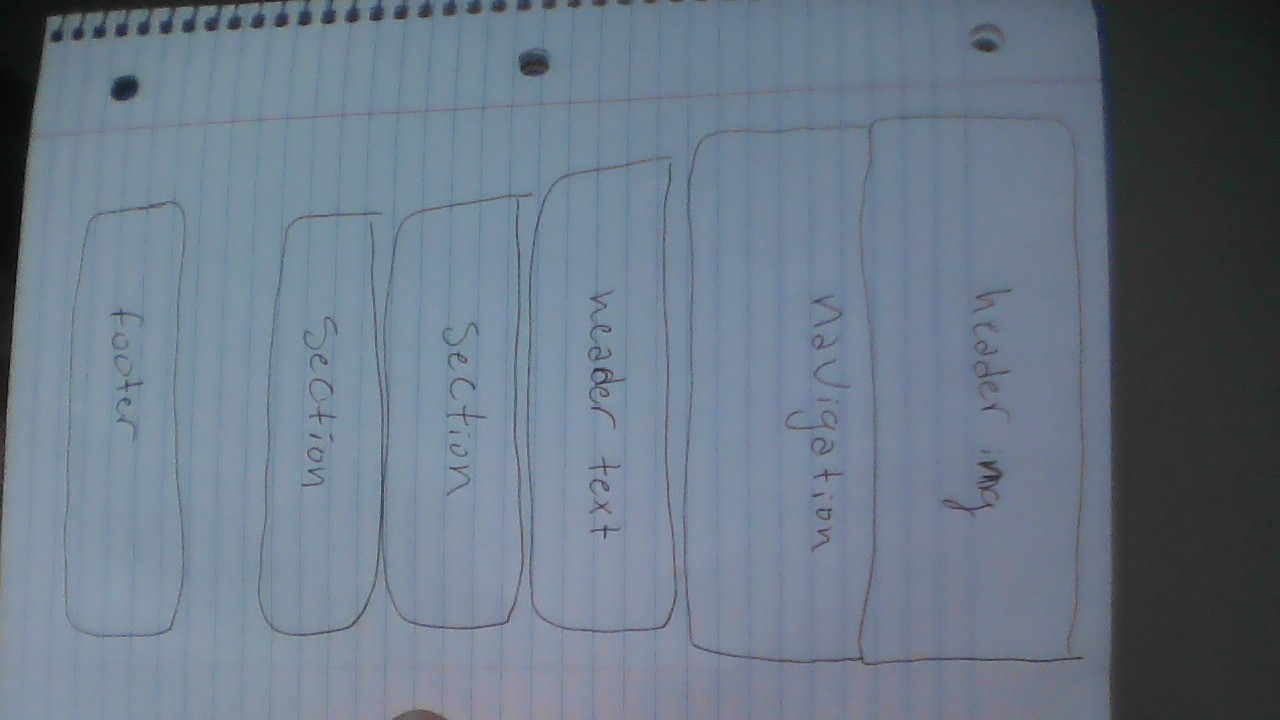 header img
navigation
header text
Section
Section
footer